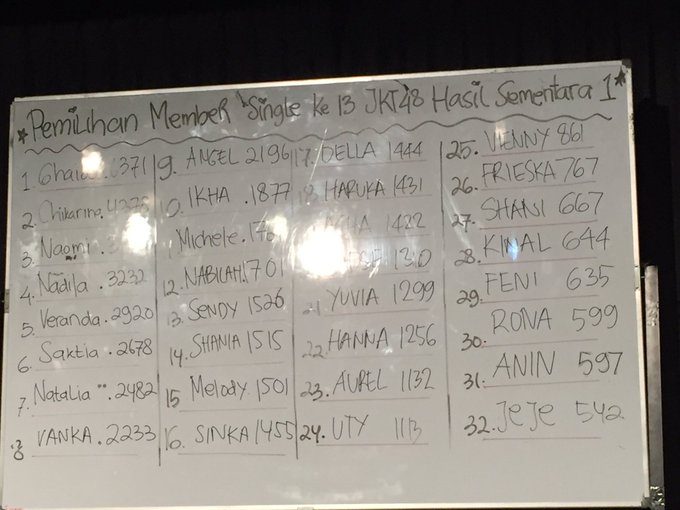 *Pemilihan Member Single ke 13 JKT48 Hasil Sementara 1*
1. Ghaida 371
2. Chikarina.
3. Naomi.
4. Nadila. 3232
5. Veranda. 2920
6. Saktia. 2678
7. Natalia .. 2482
8 VANKA. 2233
9. ANGEL 2196
IKHA .1877
Michele.
12. NABILAH.1701
13. SENDY 1526
14. SHANIA 1515
15 Melody. 1501
16. SINKA 1455
17. DELLA 1444
HARUKA 1431
1422
YUVIA 1299
22. HANNA 1256
23. AUREL 1132
24. UTY 1113
25. VIENNY 861
26. FRIESKA 767
27. SHANI 667
28. KINAL 644
29. FENI 635
30. RONA 599
31. ANIN 597
32. JeJe 542